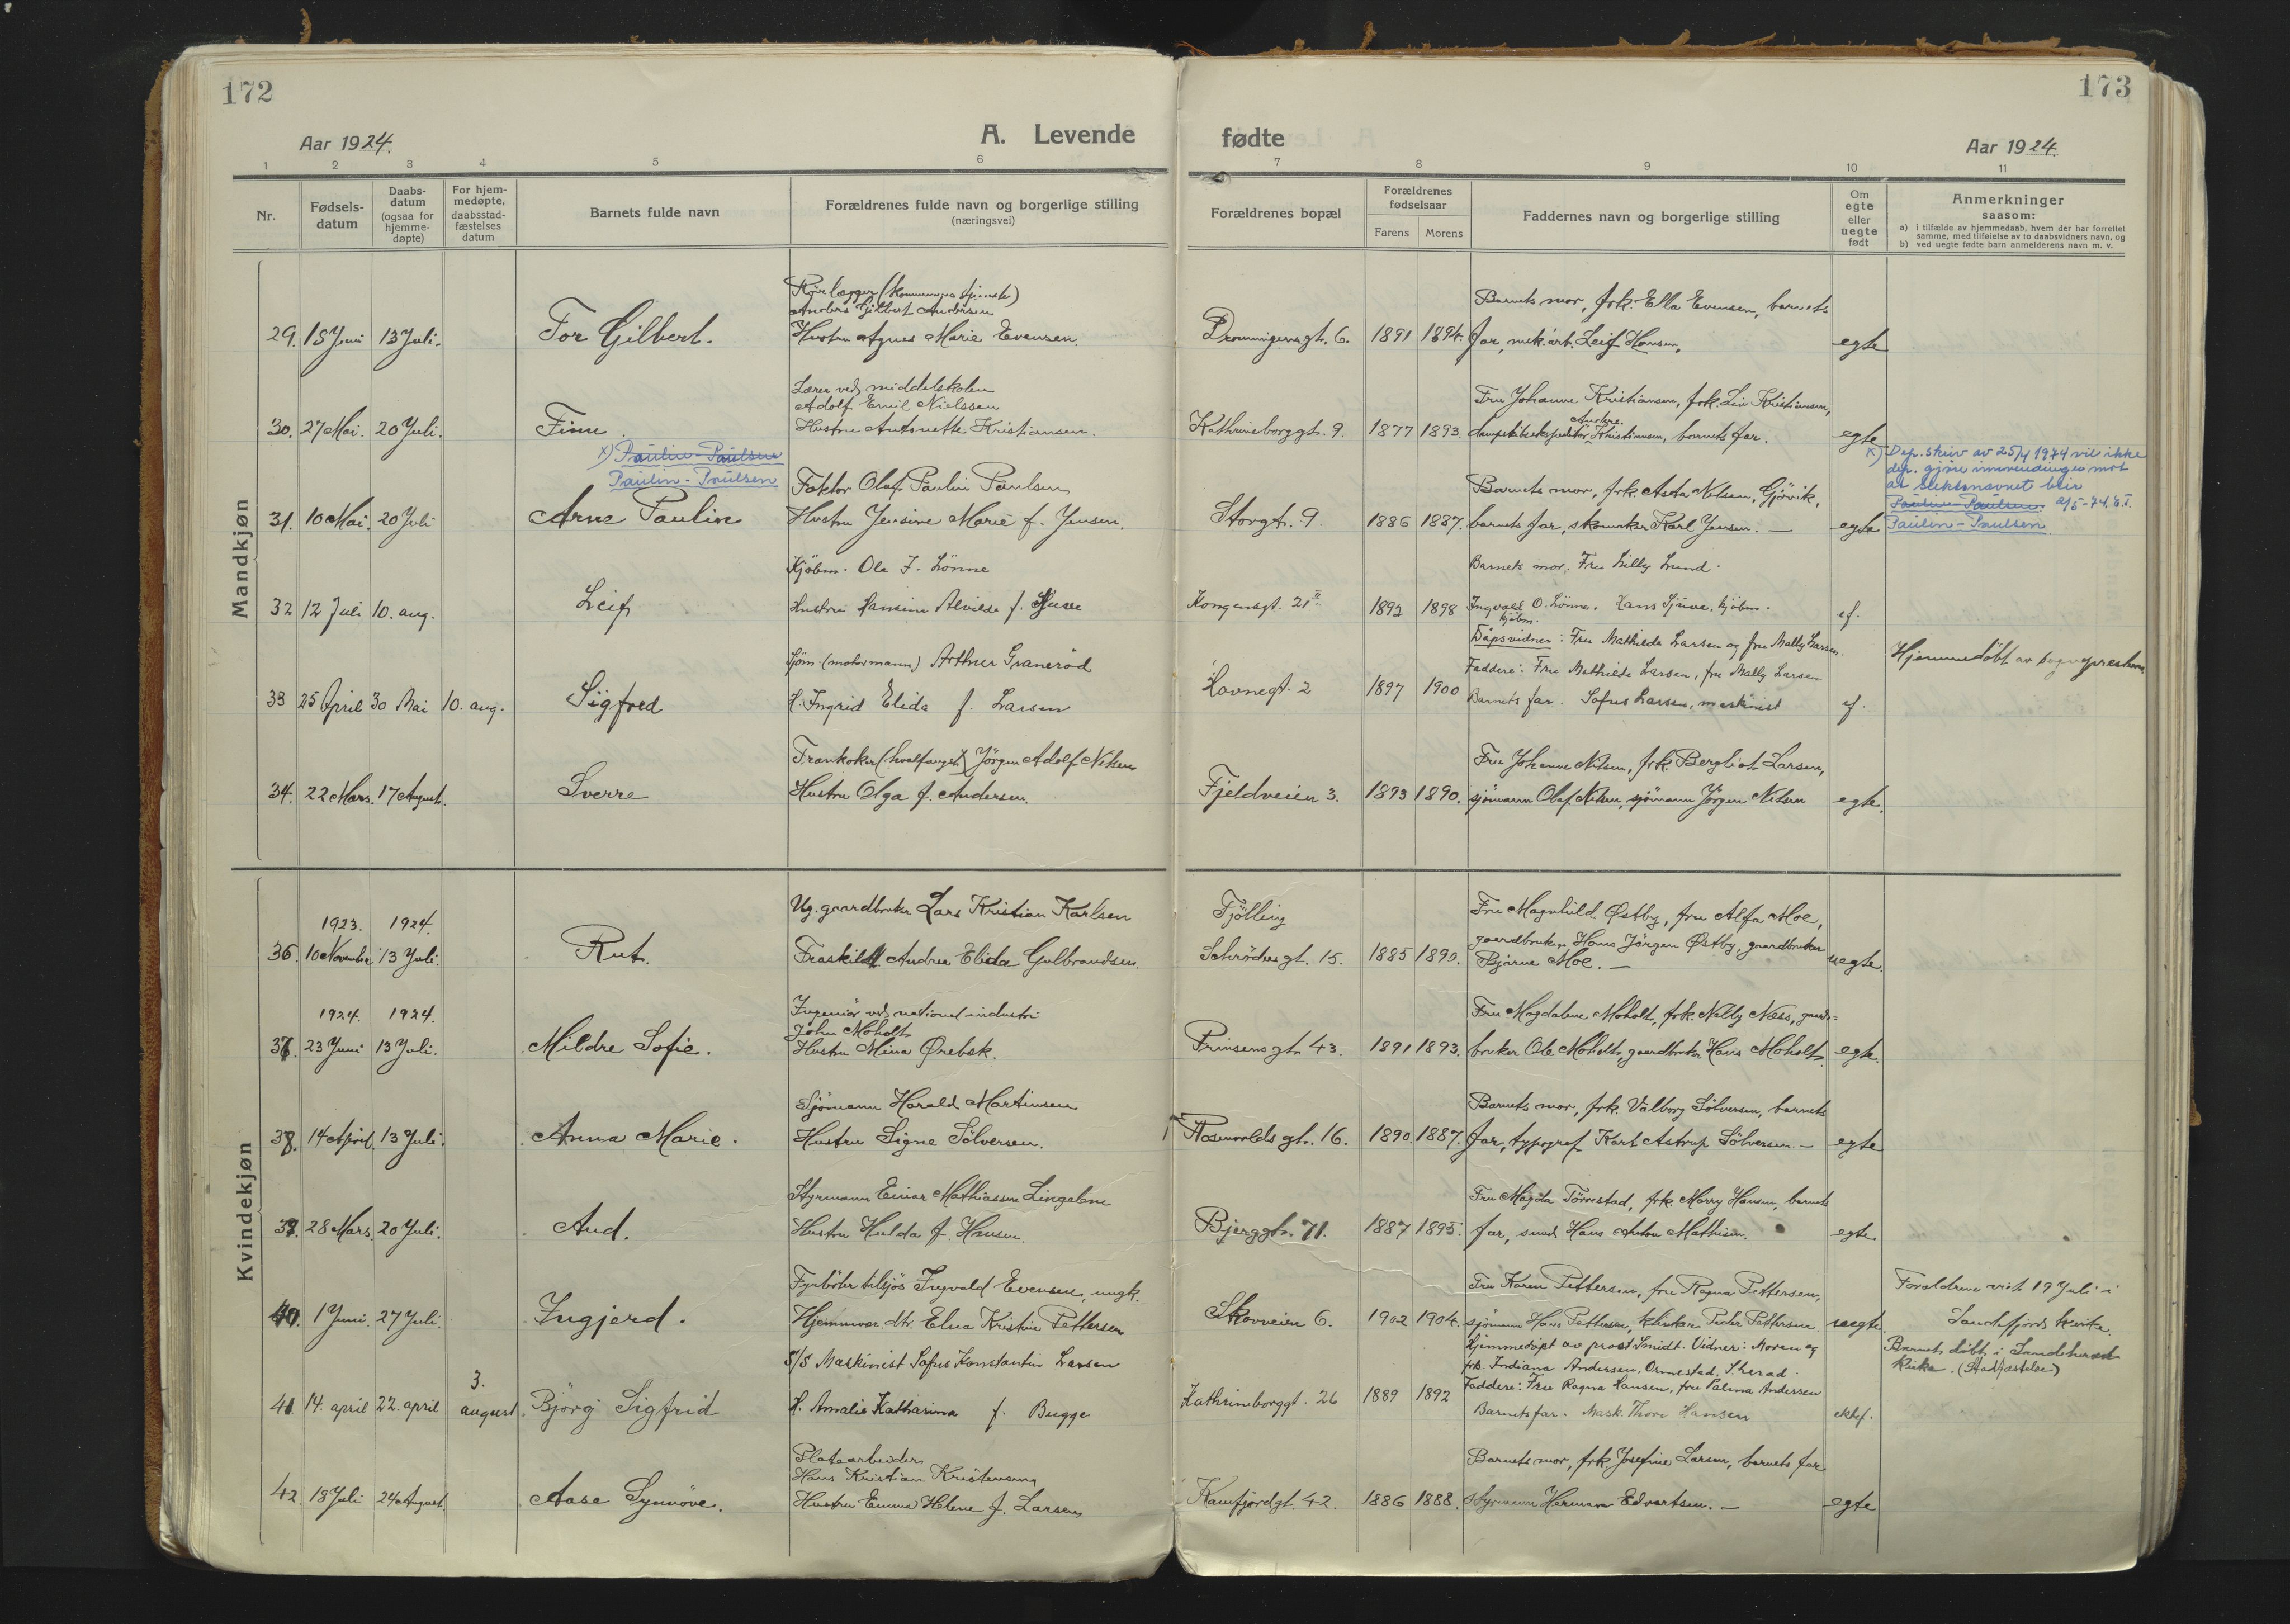 172
Aar 1924.
A. Levende
1 2 3 4 5 6
Nr.
Fødsels-
datum
Daabs-
datum
(ogsaa for
hjemme-
døpte)
For hjem-
medøpte,
daabsstad-
fæstelses
datum
Barnets fulde navn
Forældrenes fulde navn og borgerlige stilling
(næringsvei)
173
fødte
Aar 1924.
7 8 9 10 11
Forældrenes bopæl
Forældrenes
fødselsaar
Farens Morens
Faddernes navn og borgerlige stilling
Om
egte
eller
uegte
født
Anmerkninger
saasom:
a) i tilfælde av hjemmedaab, hvem der har forrettet
samme, med tilføielse av to daabsvidners navn, og
b) ved uegte fødte barn anmelderens navn m. v.
Mandkjøn
Rørlægger (kommunens tjeneste)
Anders Gilbert Andersen
Barnets mor, frk. Ella Evensen, barnets
29. 15 Juni 13 Juli. Tor Gilbert. Hustru Agnes Marie Evensen. Dronningensgt. 6. 1891 1894. far, mek. arb. Leif Hansen, egte
Lærer ved middelskolen
Adolf Emil Nielssen
Fru Johanne Kristiansen, frk. Liv Kristiansen,
30. 27 Mai. 20 Juli. Finn. Hustru Antonette Kristiansen. Kathrineborggt. 9. 1877 1893. Kristiansen, barnets far. egte
x) Paulin-Paulsen
Paulin-Paulsen
Faktor Olaf Paulin Paulsen
Barnets mor, frk. Asta Nilsen, Gjøvik,
x) Dep. skriv av 25/4 1974 vil ikke
dep. gjøre innvendinger mot
at slektsnavnet blir
Paulin-Paulsen.
Paulin-Paulsen.
31. 10 Mai. 20 Juli Arne Paulin Hustru Jensine Marie f. Jensen. Storgt. 9. 1886 1887. barnets far, Karl Jensen. — egte
Kjøbm. Ole J. Lønne
Barnets mor, Fru Lilly Lund.
32 12 Juli 10. aug. Leif Hustru Hansine Alvilde f. Sjuve Kongensgt. 21 II. 1892 1898 Ingvald O. Lønne, Hans Sjuve, kjøbm. ef.
kjøbm.
Dåpsvidner: Fru Mathilde Larsen og fru Mally Larsen.
Sjøm. (motormann) Arthur Granerød
Faddere: Fru Mathilde Larsen, fru Mally Larsen
Hjemmedøbt av sognepresten.
33 25 April 30 Mai 10. aug. Sigfred H. Ingrid Elida f. Larsen Havnegt. 2 1897 1900 Barnets far. Sofus Larsen, maskinist ef.
Trankoker (hvalfanget) Jørgen Adolf Nilsen
Fru Johanne Nilsen, frk. Bergliot Larsen,
34. 22 Mars. 17 August. Sverre Hustru Olga f. Andersen. Fjeldveien 3. 1893 1890. sjømann Olaf Nilsen, sjømann Jørgen Nilsen egte.
Kvindekjøn
1923. 1924.
Ug. gaardbruker Lars Kristian Karlsen
Tjølling
Fru Magnhild Østby, fru Alfa Moe,
gaardbruker Hans Jørgen Østby, gaardbruker
36. 10 November 13 Juli. Rut. Fraskildt Andrea Elida Gulbrandsen. Schrødersgt. 15. 1885 1890. Bjarne Moe. — uegte.
1924. 1924.
Ingeniør ved national industri
John Moholt
Fru Magdalene Moholt, frk. Nelly Næss, gaard-
37. 23 Juni 13 Juli. Mildre Sofie. Hustru Mina Ørebek. Prinsensgt. 43. 1891 1893. bruker Ole Moholt, gaardbruker Hans Moholt. egte.
Sjømann Harald Martinsen
Barnets mor, frk. Valborg Sølversen, barnets
38. 14 April. 13 Juli. Anna Marie. Hustru Signe Sølversen. Rosenvolds gt. 16. 1890. 1887. far, typograf Karl Astrup Sølversen. — egte
Styrmann Einar Mathiassen Lingelem
Fru Magda Tørrestad, frk. Marry Hansen, barnets
39. 28 Mars. 20 Juli. Aud. Hustru Hulda f. Hansen. Bjerggt. 71. 1887 1895. far, smed Hans Anton Mathisen. egte
Fyrbøter tilsjøs Ingvald Evensen, ungk.
Fru Karen Pettersen, fru Ragna Pettersen,
Forældrene viet 19 Juli i
40. 1 Juni. 27 Juli. Ingjerd. Hjemmevær. dtr. Elna Kristine Pettersen Skovveien 6. 1902 1904. sjømann Hans Pettersen, Peder Pettersen. uegte. Sandefjords kirke.
Hjemmedøpt av prost Smidt. Vidner: Moren og
frk. Indiana Andersen, Ormestad, S.herad.
Barnet døbt i Sandeherad
kirke. (Stadfæstelse)
S/S Maskinist Sofus Konstantin Larsen
Faddere: Fru Ragna Hansen, fru Palma Andersen
41 14. april 22. april 3. august Bjørg Sigfrid H. Amalie Katharina f. Bugge Kathrineborggt. 26 1889 1892 Barnets far. Mask. Thore Hansen ektef.
Platearbeider
Hans Kristian Kristensen
Barnets mor, frk. Josefine Larsen, barnets far
42. 18 Juli 24 August. Aase Synnøve. Hustru Emma Helene f. Larsen Kamfjordgt. 42. 1886 1888. Styrmann Herman Edvartsen. — egte